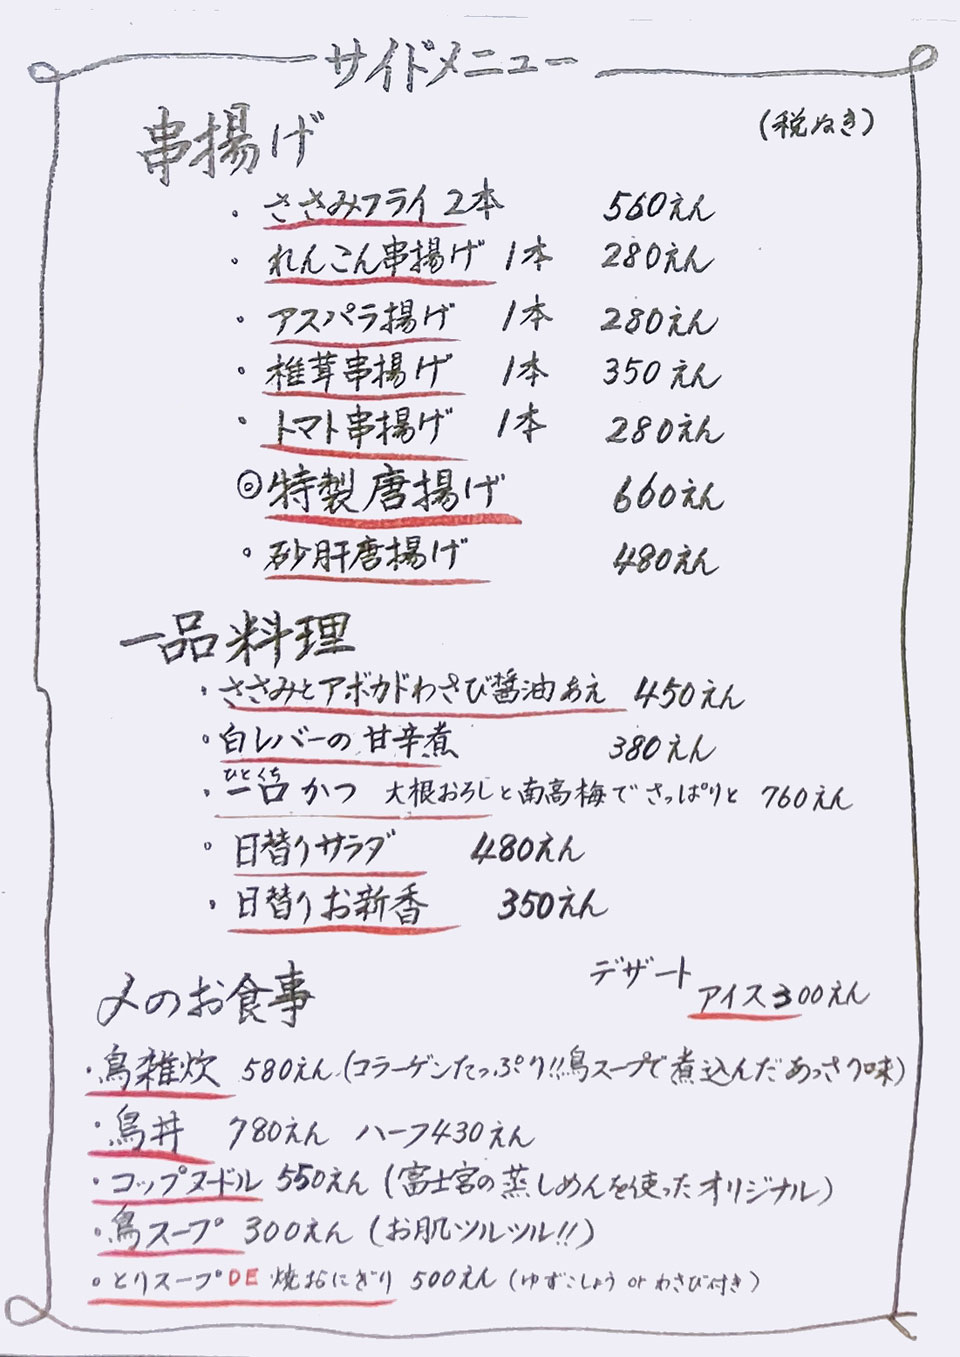 サイドメニュー
(税ぬき)
串揚げ
・ささみフライ 2本 560えん
・れんこん串揚げ 1本 280えん
・アスパラ揚げ 1本 280えん
・椎茸串揚げ 1本 350えん
・トマト串揚げ 1本 280えん
◎特製唐揚げ 660えん
・砂肝唐揚げ 480えん
一品料理
・ささみとアボカドわさび醤油あえ 450えん
・白レバーの甘辛煮 380えん
ひとくち
・一口かつ 大根おろしと南高梅でさっぱりと 760えん
・日替りサラダ 480えん
・日替りお新香 350えん
デザート
アイス300えん
〆のお食事
・鳥雑炊 580えん(コラーゲンたっぷり!!鳥スープで煮込んだあっさり味)
・鳥丼 780えん ハーフ430えん
・コップヌードル 550えん (富士宮の蒸しめんを使ったオリジナル)
・鳥スープ 300えん (お肌ツルツル!!)
・とりスープDE焼おにぎり 500えん (ゆずこしょう or わさび付き)